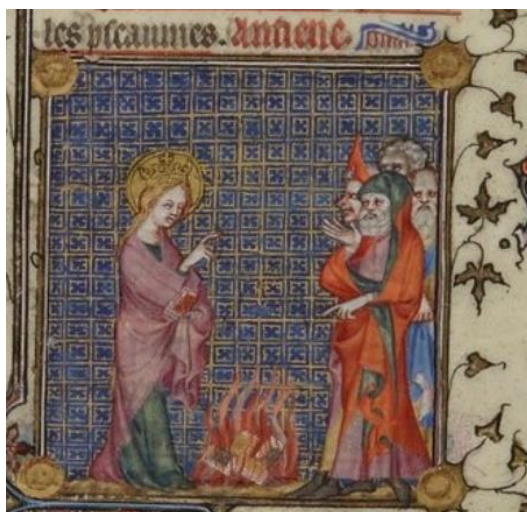 les pseaumes. Antiene